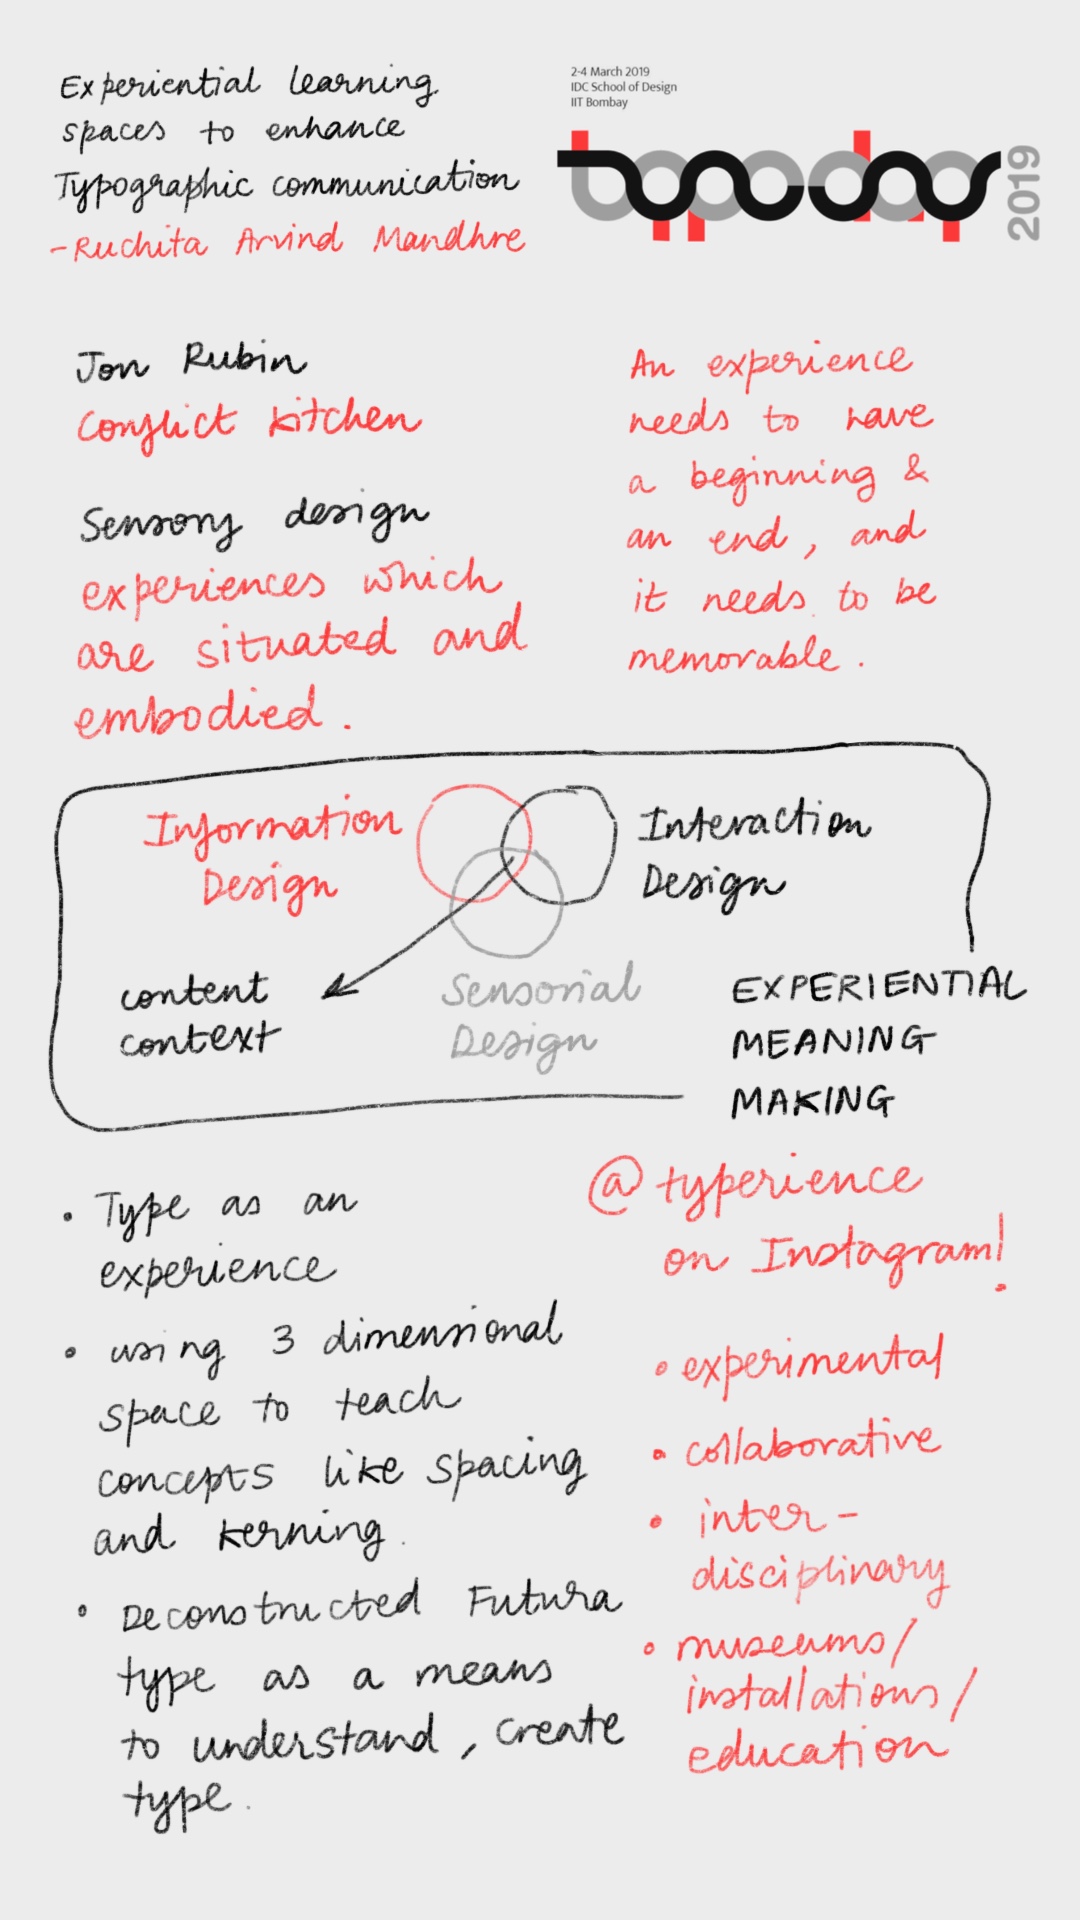 Experiential learning
spaces to enhance
Typographic communication
- Ruchita Arvind Mandhre
2-4 March 2019
IDC School of Design
IIT Bombay
typoday
2019
Jon Rubin
Conflict kitchen
Sensory design
experiences which
are situated and
embodied.
An experience
needs to have
a beginning &
an end, and
it needs to be
memorable.
Information
Design
Interaction
Design
content
context
Sensorial
Design
EXPERIENTIAL
MEANING
MAKING
• Type as an
experience
• using 3 dimensional
space to teach
concepts like spacing
and kerning.
• Deconstructed Futura
type as a means
to understand, create
type.
@typerience
on Instagram!
• experimental
• collaborative
• inter-
disciplinary
• museums/
installations/
education